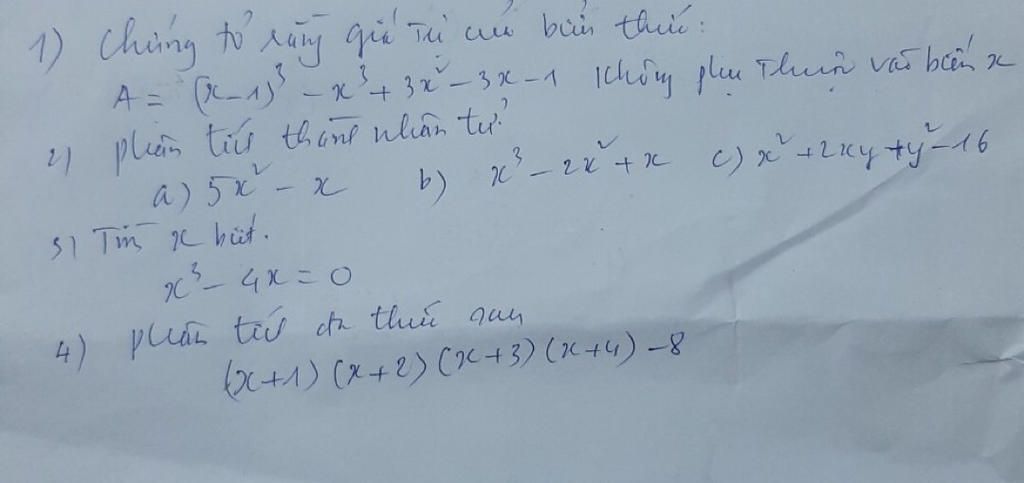 1) Chứng tỏ rằng giá trị của biểu thức:
A = (x-1)³ - x³ + 3x² - 3x - 1 không phụ thuộc vào biến x
2) phân tích thành nhân tử
a) 5x² - x b) x³ - 2x² + x c) x² + 2xy + y² - 16
3) Tìm x biết.
x³ - 4x = 0
4) phân tích đa thức sau
(x+1)(x+2)(x+3)(x+4) - 8